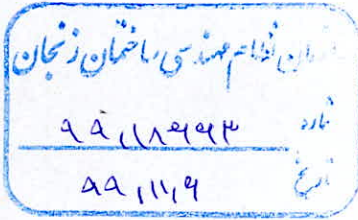 سازمان نظام مهندسی ساختمان زنجان
شماره
تاریخ ۹۹,۱۱,۹